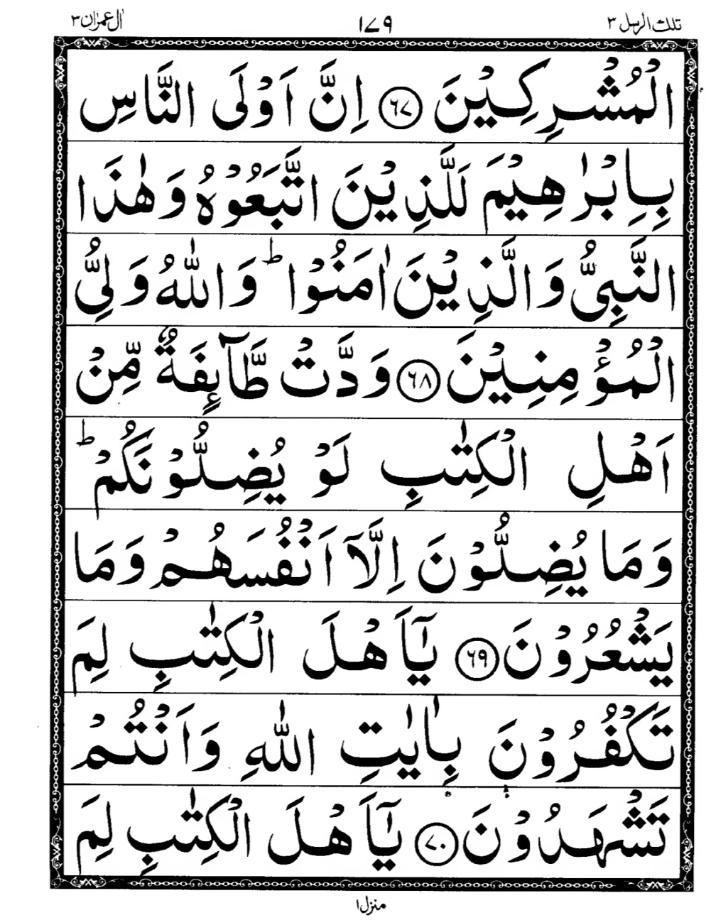 تلك الرسل ٣ ١٧٩ اٰل عمرٰن ٣
الْمُشْرِكِيْنَ ﴿٦٧﴾ اِنَّ اَوْلَى النَّاسِ
بِاِبْرٰهِيْمَ لَلَّذِيْنَ اتَّبَعُوْهُ وَهٰذَا
النَّبِىُّ وَالَّذِيْنَ اٰمَنُوْا ؕ وَاللّٰهُ وَلِىُّ
الْمُؤْمِنِيْنَ ﴿٦٨﴾ وَدَّتْ طَّآئِفَةٌ مِّنْ
اَهْلِ الْكِتٰبِ لَوْ يُضِلُّوْنَكُمْ ؕ
وَمَا يُضِلُّوْنَ اِلَّاۤ اَنْفُسَهُمْ وَمَا
يَشْعُرُوْنَ ﴿٦٩﴾ يٰۤاَهْلَ الْكِتٰبِ لِمَ
تَكْفُرُوْنَ بِاٰيٰتِ اللّٰهِ وَاَنْتُمْ
تَشْهَدُوْنَ ﴿٧٠﴾ يٰۤاَهْلَ الْكِتٰبِ لِمَ
منزل ١